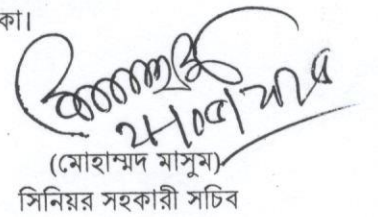 কা।
(মোহাম্মদ মাসুম)
সিনিয়র সহকারী সচিব